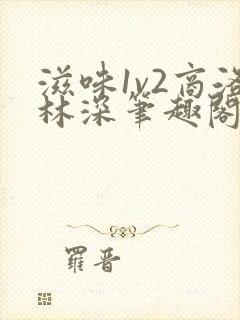 滋味1v2高洛
林深笔趣阁
羅晋